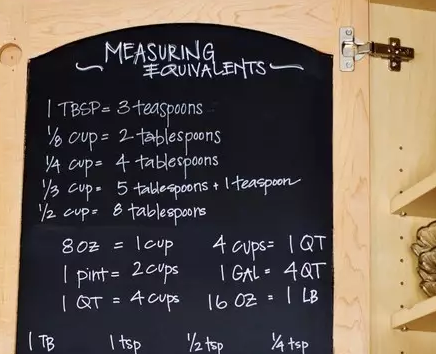 MEASURING
EQUIVALENTS
1 TBSP = 3 teaspoons
1/8 cup = 2 tablespoons
1/4 cup = 4 tablespoons
1/3 cup = 5 tablespoons + 1 teaspoon
1/2 cup = 8 tablespoons
8 oz = 1 cup
1 pint = 2 cups
1 QT = 4 cups
4 cups = 1 QT
1 GAL = 4 QT
16 OZ = 1 LB
1 TB 1 tsp 1/2 tsp 1/4 tsp